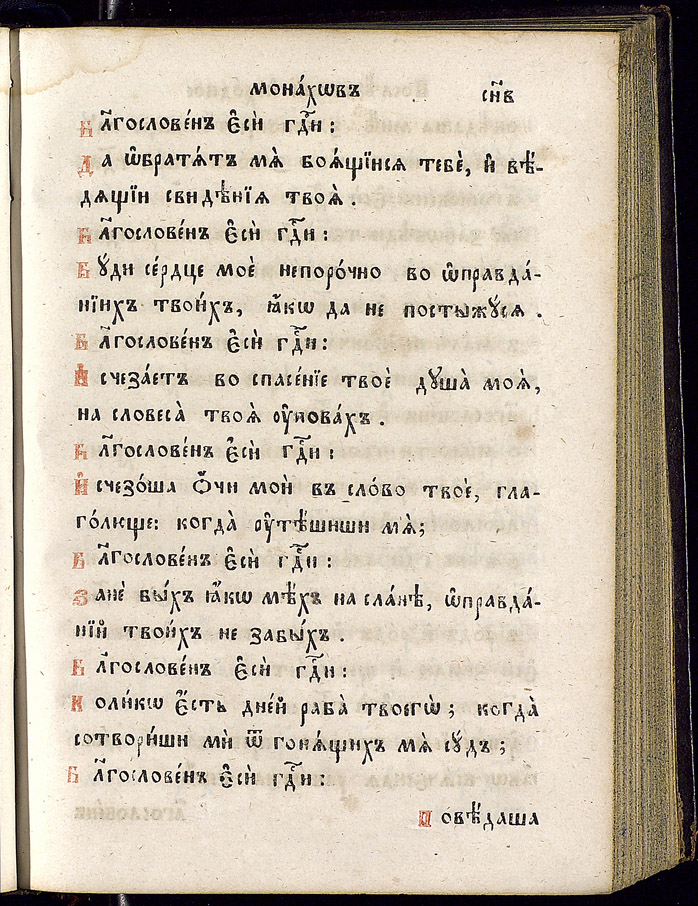 мона́хѡвъ сн҃в
Бл҃гослове́нъ є҆сѝ гдⷭ҇и:
Да ѡ҆братѧ́тъ мѧ̀ боѧ́щїисѧ тебѐ, и҆ вѣ́-
дѧщїи свидѣ́нїѧ твоѧ̀.
Бл҃гослове́нъ є҆сѝ гдⷭ҇и:
Бꙋ́ди се́рдце моѐ непоро́чно во ѡ҆правда́-
нїихъ твои́хъ, ꙗ҆́кѡ да не постыжꙋ́сѧ.
Бл҃гослове́нъ є҆сѝ гдⷭ҇и:
И҆счеза́етъ во спасе́нїе твоѐ дꙋша̀ моѧ̀,
на словеса̀ твоѧ̀ ᲂу҆пова́хъ.
Бл҃гослове́нъ є҆сѝ гдⷭ҇и:
И҆счезо́ша ѻ҆́чи моѝ въ сло́во твоѐ, гла-
го́люще: когда̀ ᲂу҆тѣ́шиши мѧ̀;
Бл҃гослове́нъ є҆сѝ гдⷭ҇и:
Занѐ бы́хъ ꙗ҆́кѡ мѣ́хъ на сла́нѣ, ѡ҆правда́-
нїй твои́хъ не забы́хъ.
Бл҃гослове́нъ є҆сѝ гдⷭ҇и:
Коли́кѡ є҆́сть дне́й раба̀ твоегѡ̀; когда̀
сотвори́ши мѝ ѿ гонѧ́щихъ мѧ̀ сꙋ́дъ;
Бл҃гослове́нъ є҆сѝ гдⷭ҇и:
Повѣ́даша